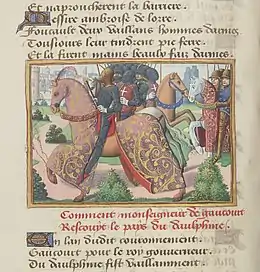 Et naprouchèrent la barriere.
Messire ambroise de lore.
Foucault deux vaillans hommes darmes
Tousiours leur tindrent pie ferre.
Et la firent maints beaulx faiz darmes.
Comment monseigneur de gaucourt
Rescoupt le pays du daulphine.
En lan dudit couronnement.
Gaucourt pour le roy gouverneur.
Du daulphine fist vaillamment.